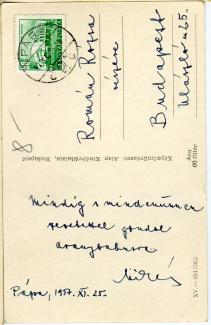 Román Rózsa
részére
Budapest
Ulászló u 65.
Képzőművészeti Alap Kiadóvállalata, Budapest
Ára
60 fillér
8-
Mindig s mindenünnen
szeretettel gondol
aranybabusra
Pápa, 1957. XI. 25.